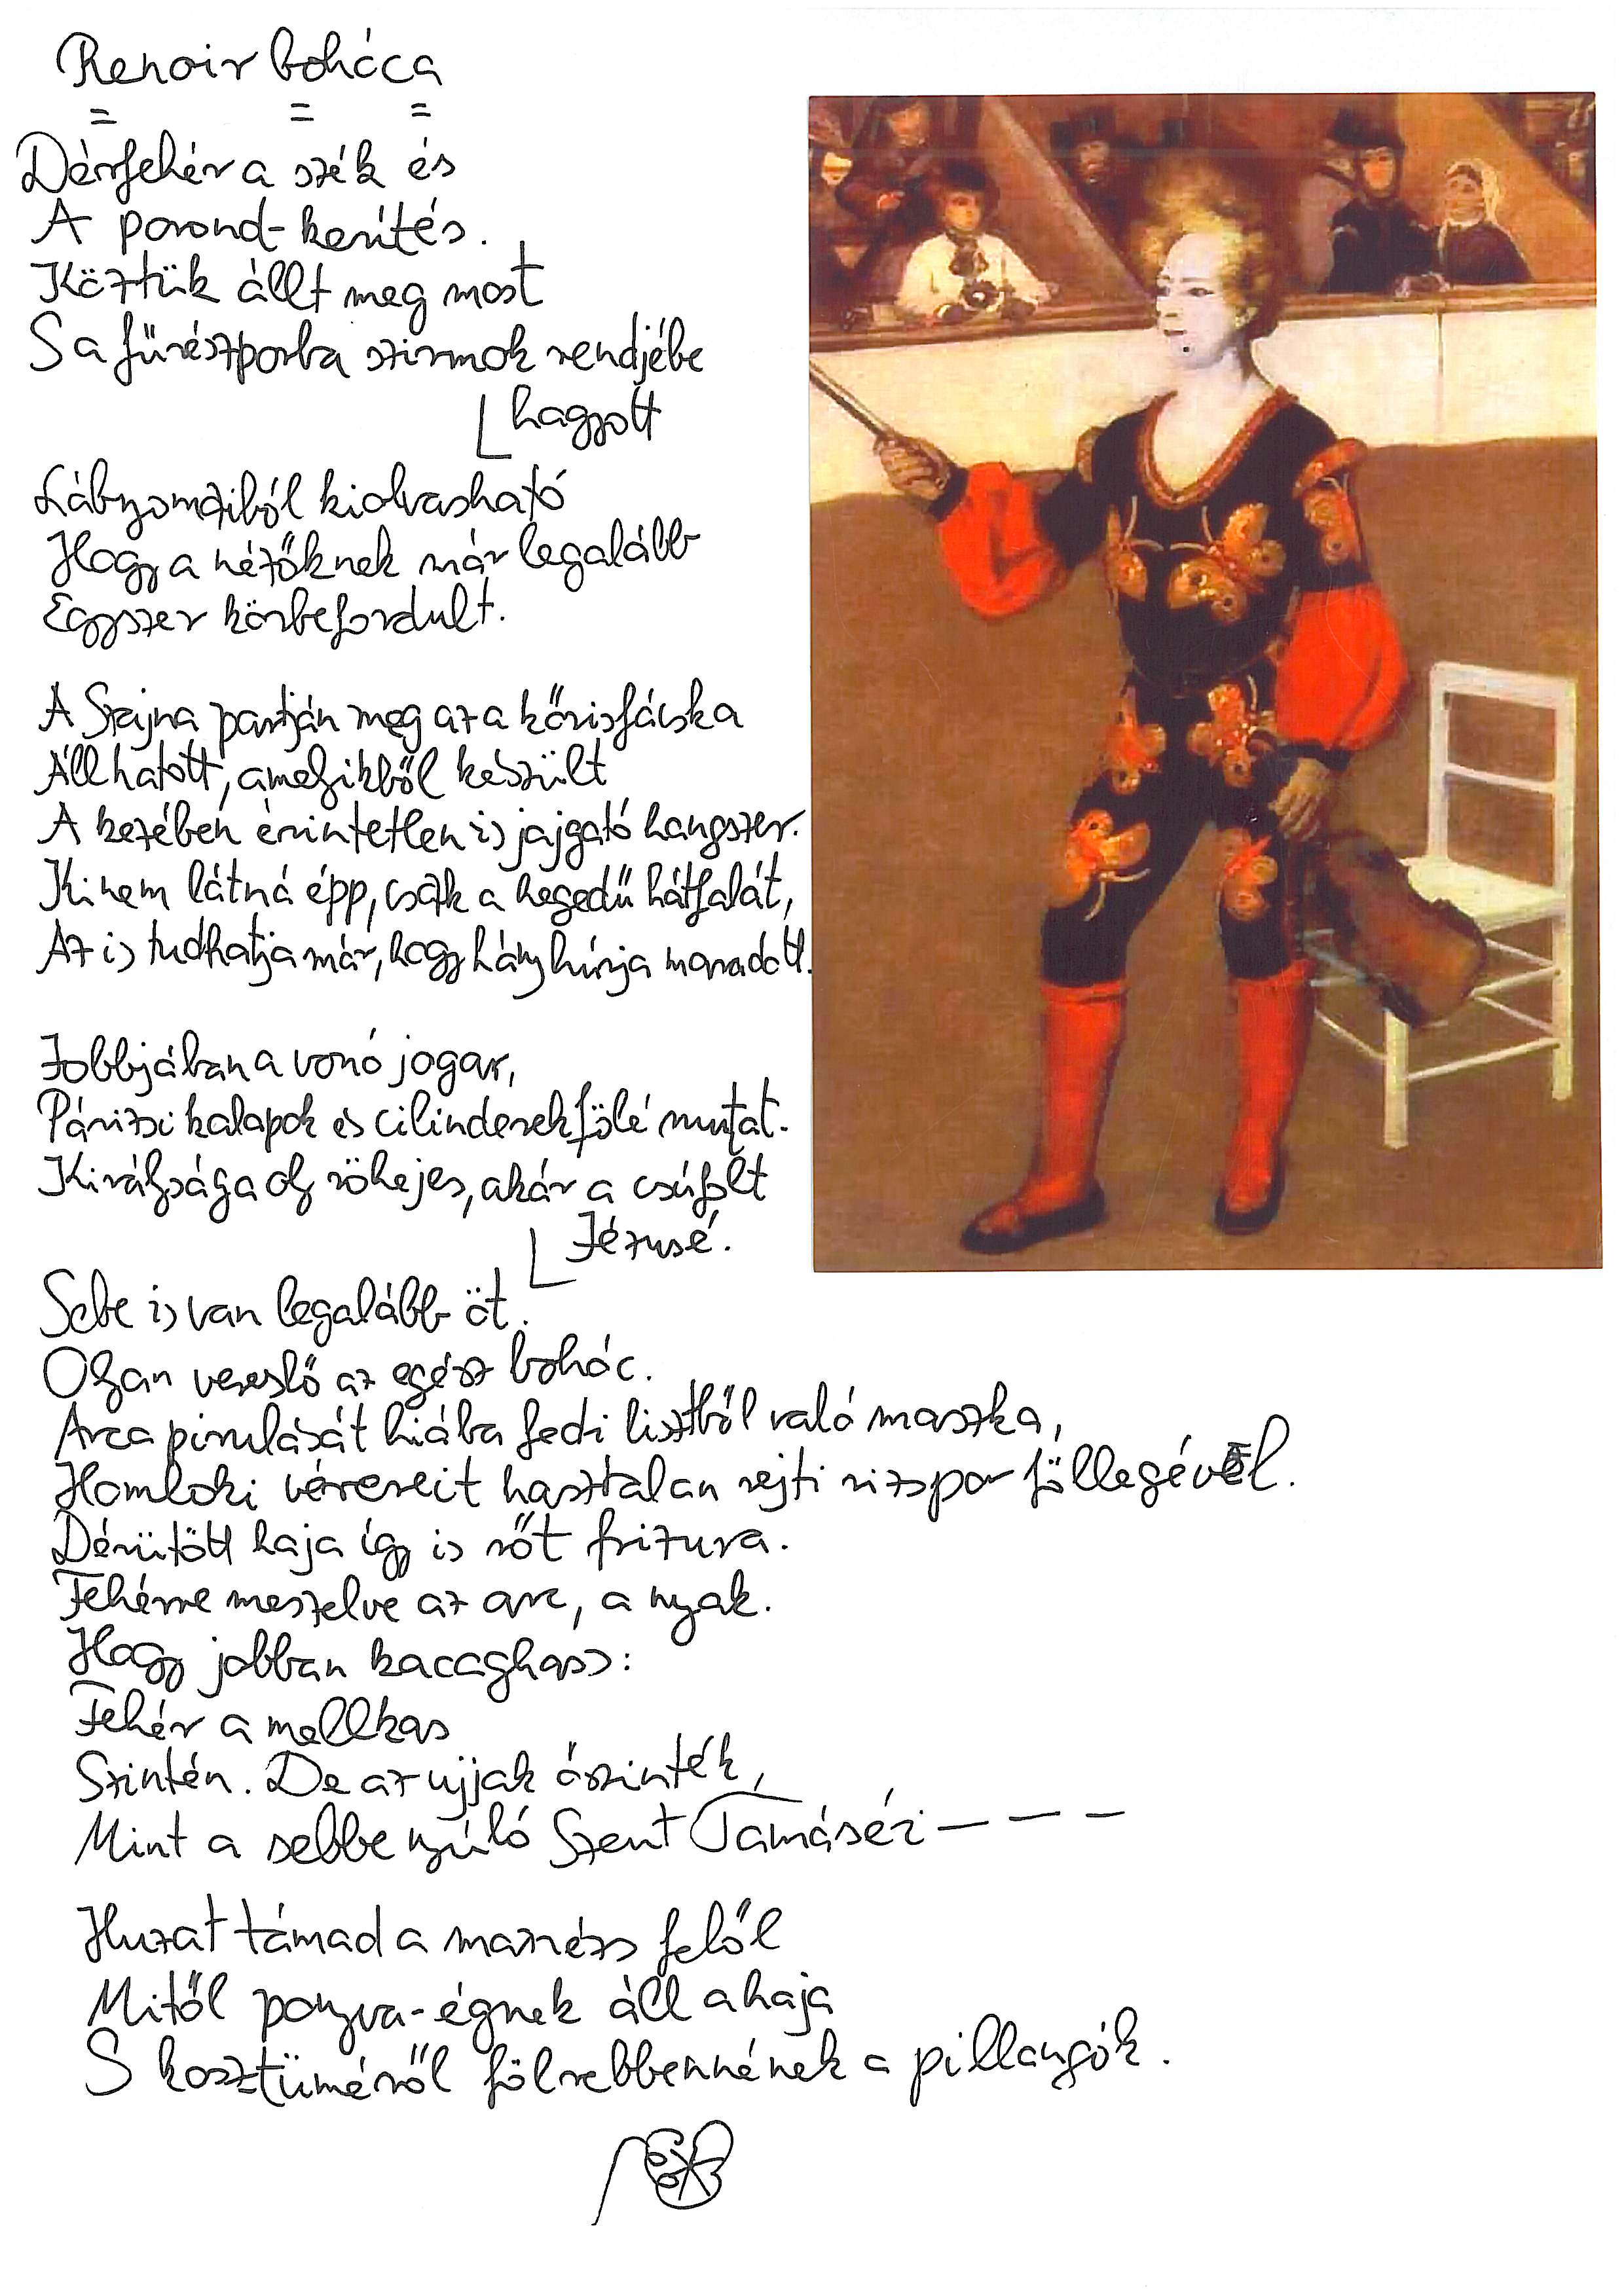 Renoir bohóca
Dérfehér a szék és
A porond-kerítés.
Köztük állt meg most
S a fűrészporba szirmok rendjébe
hagyott
Lábnyomaiból kiolvasható
Hogy a nézőknek már legalább
Egyszer körbefordult.
A Szajna partján meg az a kőrisfácska
Állhatott, amelyikből készült
A kezében érintetlen is jajgató hangszer.
Ki nem látná épp, csak a hegedű hátfalát,
Az is tudhatja már, hogy hány húrja maradott.
Jobbjában a vonó jogar,
Párizsi kalapok és cilinderek fölé mutat.
Királysága oly röhejes, akár a csúfolt
Jézusé.
Sebe is van legalább öt.
Olyan vereslő az egész bohóc.
Arca pirulását hiába fedi lisztből való maszka,
Homloki vérereit hasztalan rejti rizspor föllegével.
Dérütött haja így is rőt frizura.
Fehérre meszelve az arc, a nyak.
Hogy jobban kacaghass:
Fehér a mellkas
Szintén. De az ujjak őszinték,
Mint a sebbe nyúló Szent Tamáséi – – –
Huzat támad a manézs felől
Mitől ponyva-égnek áll a haja
S kosztüméről fölrebbennének a pillangók.